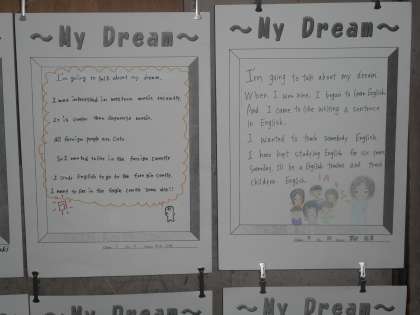 ~My Dream~
I'm going to talk about my dream.
I was interested in western music recently.
It is cooler than Japanese music.
All foreign people are Cute.
So I wanted to live in the foreign country.
I study English to go to the foreign country.
I want to live in the foreign country some day!!
~My Dream~
I'm going to talk about my dream.
When I was nine, I began to learn English.
And I came to like writing a sentence
in English.
I wanted to teach somebody English.
I have kept studying English for six years.
Someday, I'll be a English teacher and teach
children English.
~My Dream~
~My Dream~